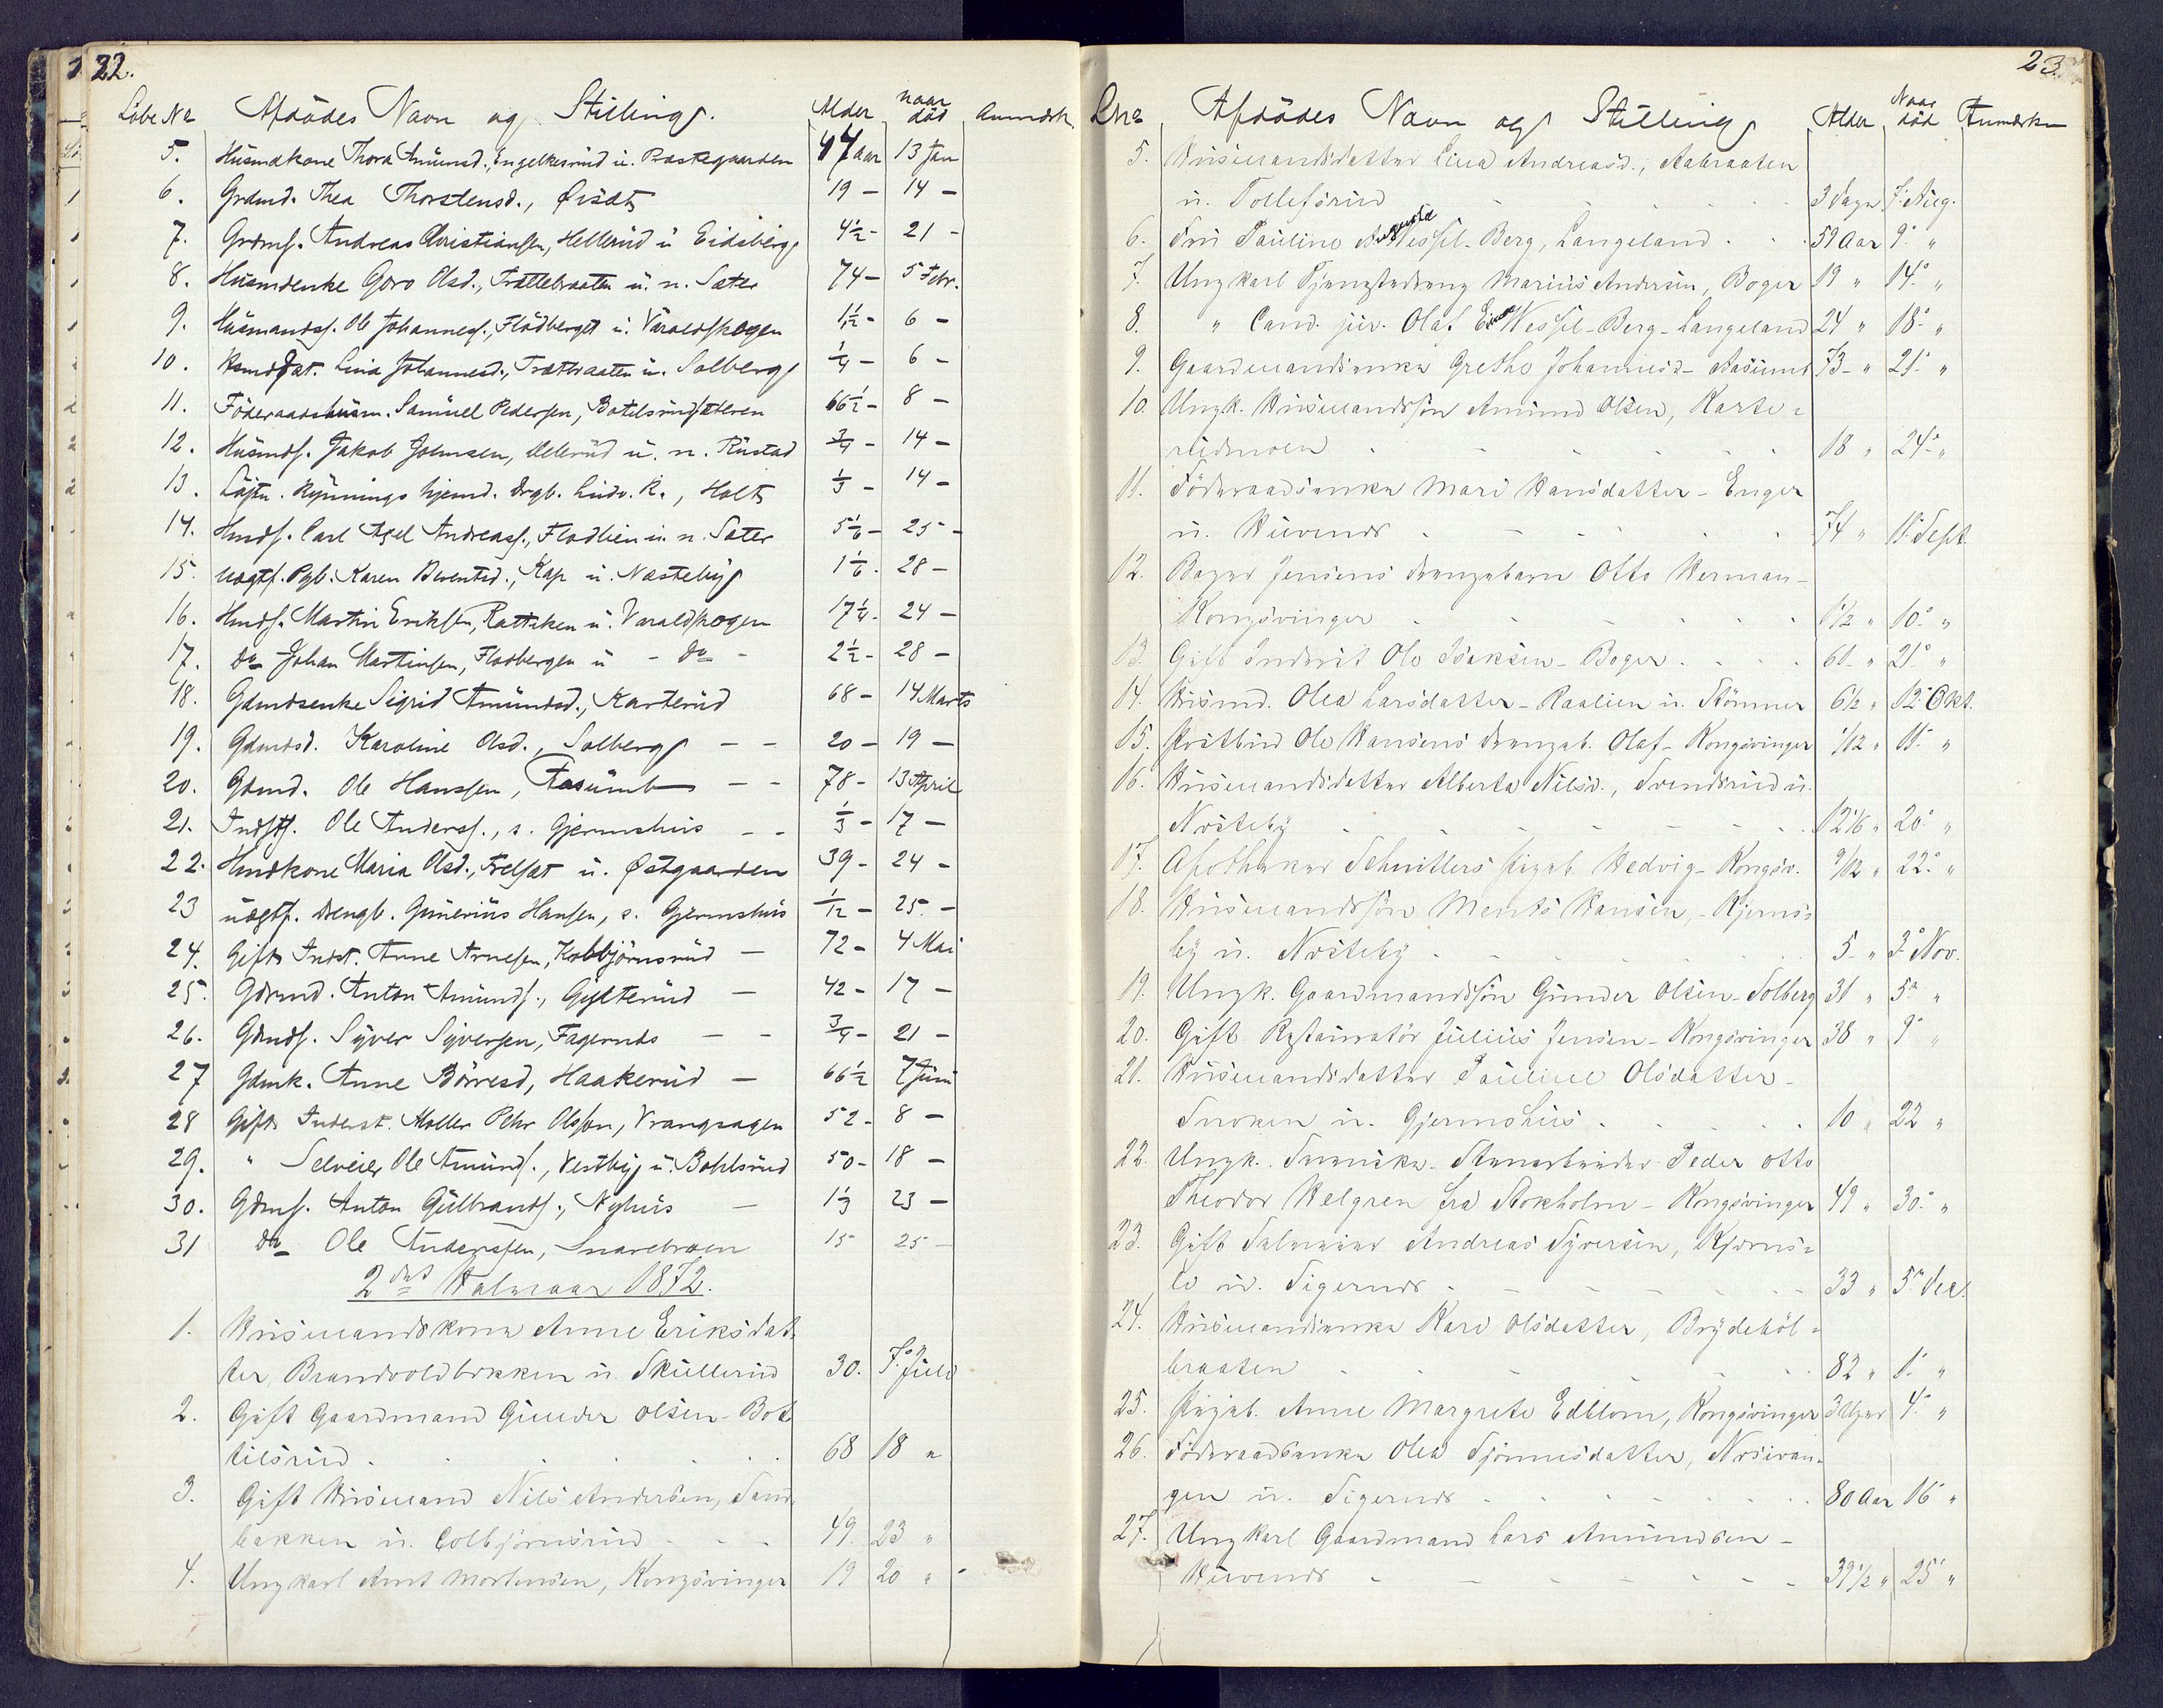 22.
Løbe No Afdødes Navn og Stilling. Alder naar død Anmærk.
5. Husmdkone Thora Amunds., Engelkesrud u. Præstegaarden 47 aar 13 Jan
6. Grdmd. Thea Thorstensd., Øiset 19 - 14 -
7. Grdms. Andreas Christiansen, Hellerud u Eidsberg 4½ - 21 -
8. Husmdenke Goro Olsd., Trættebraaten u. n. Sæter 74 - 5 Febr.
9. Husmandss. Ole Johanness., Flødberget u. Varaldskogen 1 1/12 - 6 -
10. Hsmddat. Lina Johannesd., Trætbraaten u. Solberg ¼ - 6 -
11. Føderaadshusm. Samuel Pedersen, Botilsrudsæteren 66½ - 8 -
12. Husmds. Jakob Johnsen, Ullerud u. n. Rustad ¾ - 14 -
13. Løjtn. Kynnings hjemd. drgb. Ludv. K., Holt ⅓ - 14 -
14. Hmds. Carl Axel Andreass., Flodlien u. n. Sæter 5 1/6 - 25 -
15. uægtf. Pgb. Karen Berentsd., Kap u. Næsteby 1 1/6 - 28 -
16. Hmds. Martin Eriksen, Rattiken u. Varaldskogen 17¼ - 24 -
17. Do Johan Martinsen, Flodbergen u - Do - 2½ - 28 -
18. Gdmdsenke Sigrid Amundsd., Karterud 68 - 14 Marts
19. Gdmdsd. Karoline Olsd., Solberg - - 20 - 19 -
20. Gdmd. Ole Hanssen, Aasum - - 78 - 13 April
21. Indsts. Ole Anderss., s. Gjermshus - - ⅓ - 17 -
22. Hmdkone Maria Olsd., Frelsæt u. Østgaarden 39 - 24 -
23 uægtf. Drengb. Gunerius Hansen, s. Gjermshus 1/12 - 25. -
24. Gift Indst. Arne Arnesen, Kolbjörnsrud - 72 - 4 Mai
25. Gdmd. Anton Amunds., Gylterud - 42 - 17 -
26. Gdmds. Syver Syversen, Fagernes - - ¾ - 21 -
27 Gdmk. Anne Børresd, Haakerud - 66½ 7 Juni
28 Gift Inderst. Møller Pehr Olsson, Vrangsagen 52 - 8 -
29. " Selveier Ole Amunds., Vestby u. Bohlsrud 50 - 18 -
30. Gdms. Anton Gulbrands., Nyhus - 1⅓ 23 -
31 Do Ole Anderssen, Snarebroen 15 25 -
2det Halvaar 1872.
1. Husmandskone Anne Eriksdat-
ter, Brandvoldbakken u. Skullerud 30. 7. Juli
2. Gift Gaardmand Gunder Olsen - Bot-
tilsrud . . . . . 68 18 "
3. Gift Husmand Nils Andersen, Sand
bakken u. Colbjörnsrud - - - 49. 23 "
4. Ungkarl Amt Mortensen, Kongsvinger 19 20 "
23.
Lno Afdødes Navn og Stilling Alder Naar død Anmærkn
5. Husmandsdatter Lina Andreasd., Aabraaten
u. Tollefsrud . . . . 3 Dage 7. Aug.
6. Fru Pauline Augusta Wessel-Berg, Langeland . . 59 Aar 9. "
7. Ungkarl Tjenestedreng Marius Andersen, Boger 19 " 14. "
8. " Cand. jur. Olaf Wessel-Berg - Langeland 24 " 18. "
9. Gaardmandsenke Grethe Johannesd - Aasum 73 - " 21. "
10. Ungk. Husmandssøn Amund Olsen, Karte-
rudmoen . . . . 18 " 24. "
11. Føderaadsenke Mari Hansdatter - Enger
u. Huvenes . - - . . 74 " 11. Sept.
12. Bager Jensens Drengebarn Otto Herman -
Kongsvinger - - - . . 1½ " 10. "
13. Gift Inderst Ole Isaksen - Boger . . . 61 - " 21. "
14. Husmd. Olea Larsdatter - Raalien u. Stömner 6½ " 12. Okt.
15. Postbud Ole Hansens Drengeb. Olaf - Kongsvinger 1/12 " 11. "
16. Husmandsdatter Alberta Nilsd., Svendsrud u.
Næsteby . . - - - - . 12 1/6 " 20. "
17. Apotheker Schnitlers Pigeb. Hedvig - Kongsv. 9/12 " 22. "
18. Husmandssøn Ments Hansen, - Kjerns-
by u. Næsteby . - - . . . 5 - " 3. Nov.
19. Ungk. Gaardmandssøn Gunder Olsen - Solberg 31 " 5. "
20. Gift Restauratör Julius Jensen - Kongsvinger 38 " 9. "
21. Husmandsdatter Pauline Olsdatter -
Snoken u. Gjermshus . . . . 10 " 22 "
22. Ungk. Svenske - Stenarbeider Peder Otto
Theodor Helgren fra Stokholm - Kongsvinger 49 " 30. "
23. Gift Selveier Andreas Syversen, Kjerns-
lo u. Sigernes - - - - - 33 " 5. Dec.
24. Husmandsenke Kari Olsdatter, Brydeböl-
braaten . . - - - . 82 " 1. "
25. Pigeb. Anne Margrete Edblom, Kongsvinger 3 Uger 4. "
26. Føderaadsenke Olea Sjönnesdatter, Næsvan-
gen u. Sigernes . . . . . . 80 Aar 16 "
27. Ungkarl Gaardmand Lars Amundsen -
Huvenes - - - - - - 39½ " 25 "